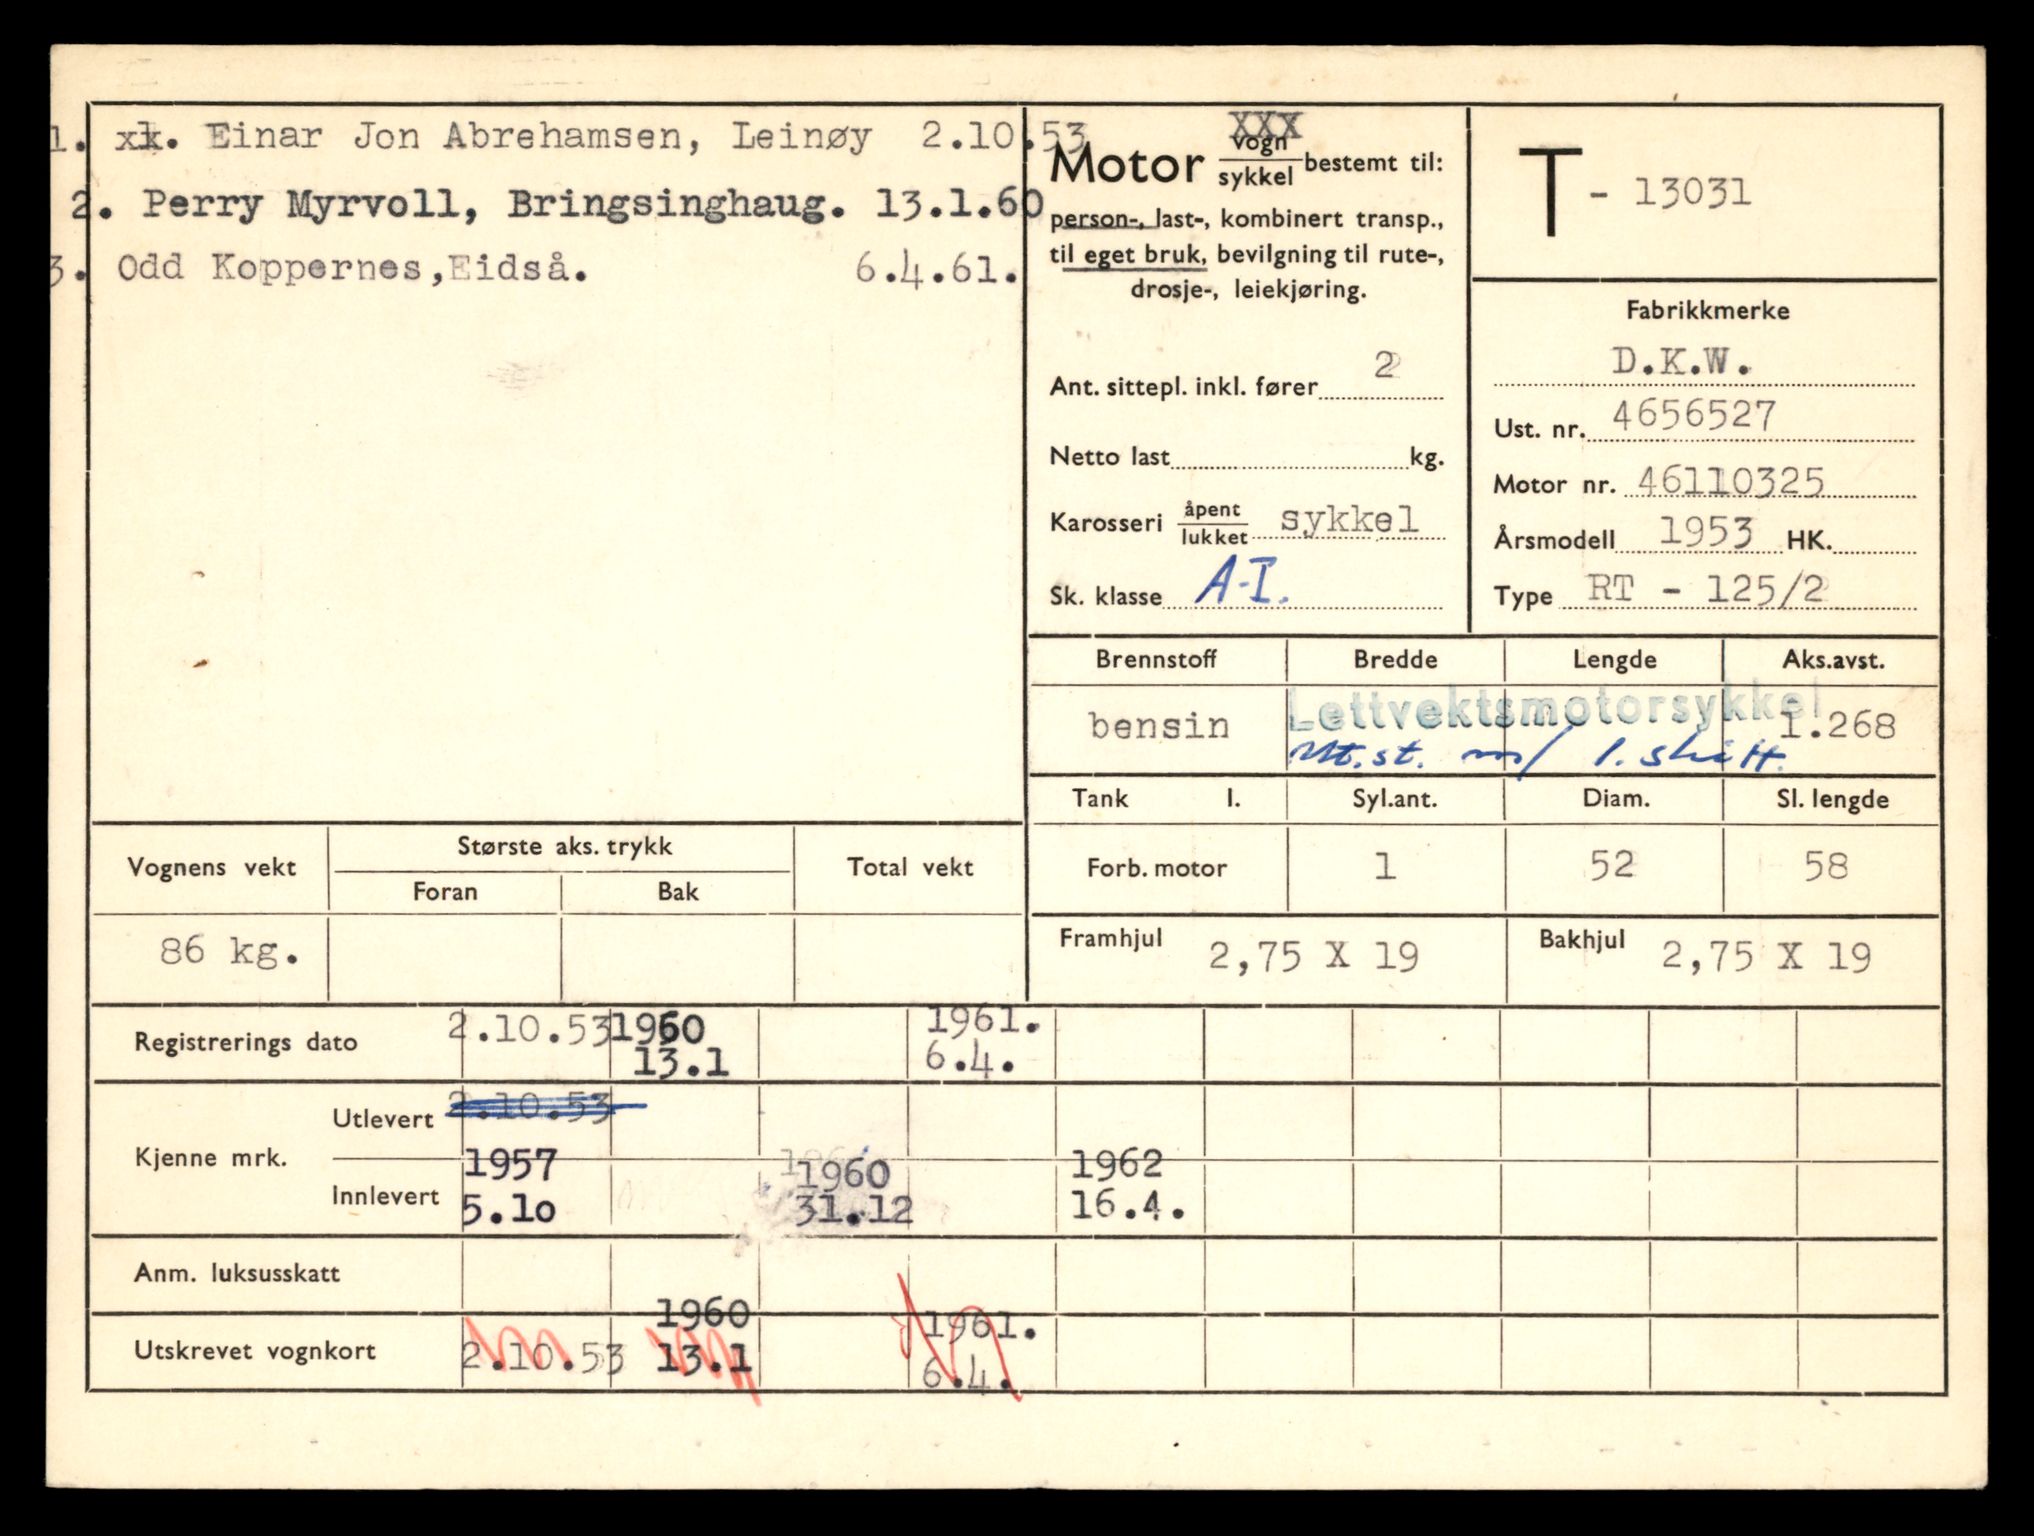 1. xk. Einar Jon Abrehamsen, Leinøy 2.10.53
2. Perry Myrvoll, Bringsinghaug. 13.1.60
3. Odd Koppernes,Eidså. 6.4.61.
XXX
Motor vogn/sykkel bestemt til:
person-, last-, kombinert transp.,
til eget bruk, bevilgning til rute-,
drosje-, leiekjøring.
Ant. sittepl. inkl. fører 2
Netto last kg.
Karosseri åpent/lukket sykkel
Sk. klasse A-I.
T - 13031
Fabrikkmerke
D.K.W.
Ust. nr. 4656527
Motor nr. 46110325
Årsmodell 1953 HK.
Type RT - 125/2
Brennstoff Bredde Lengde Aks.avst.
Lettvektsmotorsykkel
bensin 1.268
Ut.st. m/ 1. skilt.
Tank l. Syl.ant. Diam. Sl. lengde
Forb. motor 1 52 58
Framhjul 2,75 X 19 Bakhjul 2,75 X 19
Vognens vekt Største aks. trykk Total vekt
Foran Bak
86 kg.
Registrerings dato 2.10.53 1960 1961.
13.1 6.4.
Kjenne mrk.
Utlevert 2.10.53
1957 1960 1962
Innlevert 5.10 31.12 16.4.
Anm. luksusskatt
1960 1961.
Utskrevet vognkort 2.10.53 13.1 6.4.